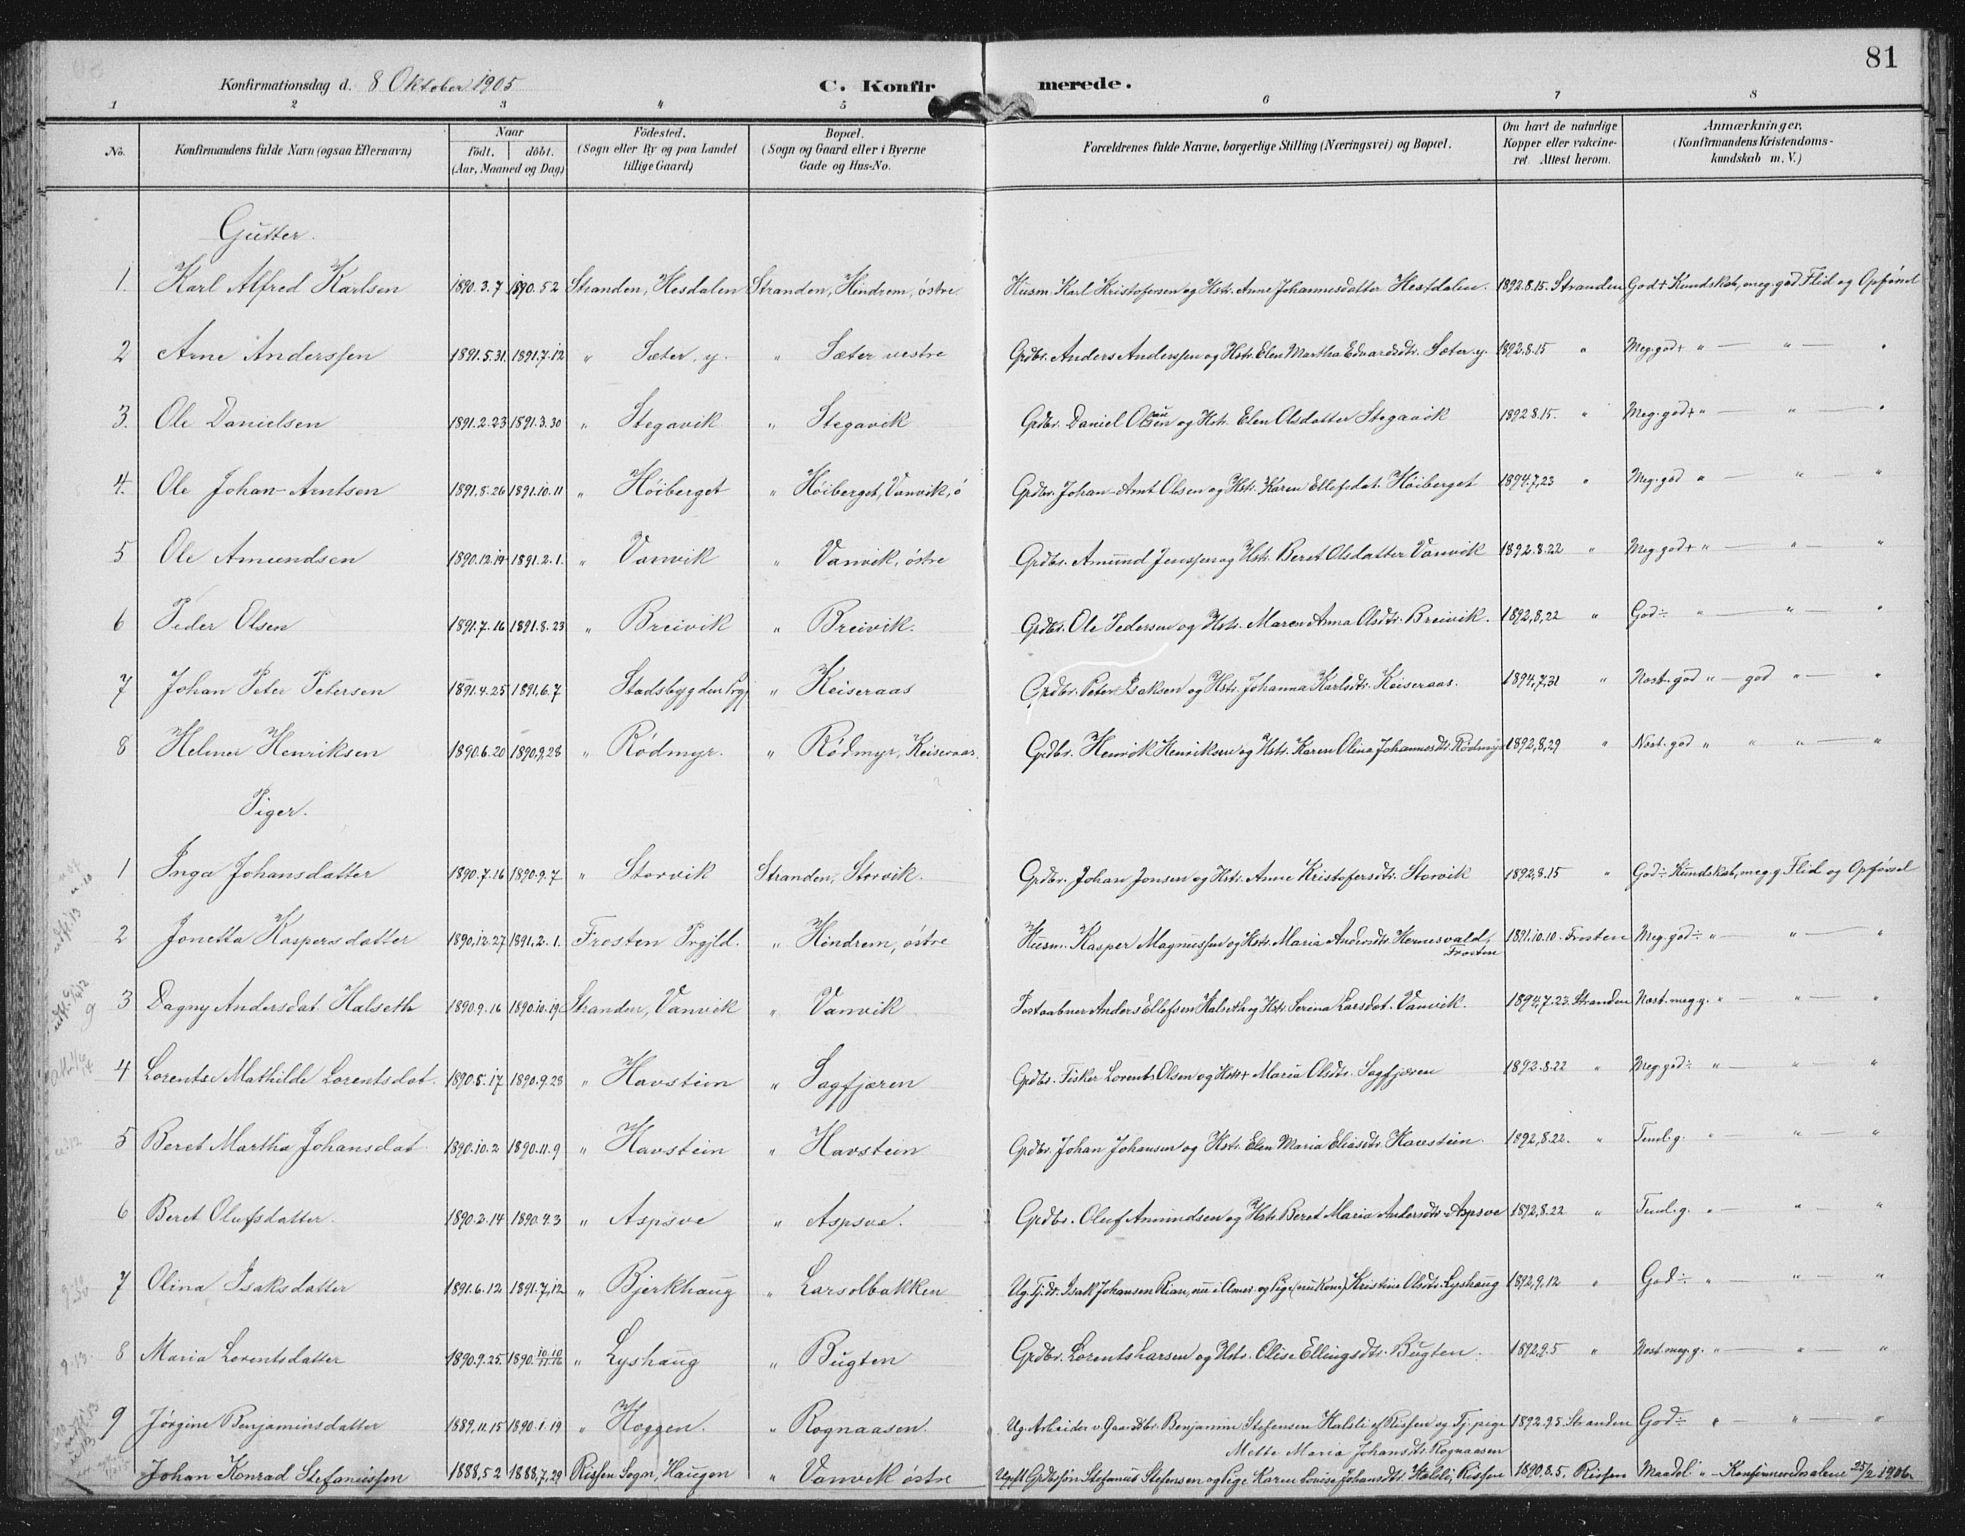 81
Konfirmationsdag d. 8 Oktober 1905
C. Konfirmerede.
1 2 3 4 5 6 7 8
No. | Konfirmandens fulde Navn (ogsaa Efternavn) | Naar født. døbt. (Aar, Maaned og Dag) | Födested. (Sogn eller By og paa Landet tillige Gaard) | Bopæl. (Sogn og Gaard eller i Byerne Gade og Hus-No. | Forældrenes fulde Navne, borgerlige Stilling (Næringsvei) og Bopæl. | Om havt de naturlige Kopper eller vakcineret. Attest herom. | Anmærkninger. (Konfirmandens Kristendomskundskab m. V.)
Gutter.
1. Karl Alfred Karlsen | 1890.3.7 | 1890.5.2 | Stranden, Hesdalen | Stranden, Hindrem, østre | Husm. Karl Kristofersen og Hstr. Anne Johannesdatter Hestdalen. | 1892.8.15. Stranden | God+ Kundskab, meg. god Flid og Opførsel
2 Arne Anderssen | 1891.5.31 | 1891.7.12 | " Sæter, y. | " Sæter vestre | Grdbr. Anders Anderssen og Hstr. Elen Martha Edvardsdtr. Sæter y. | 1892.8.15 " | Meg. god+ " — " — "
3. Ole Danielsen | 1891.2.23 | 1891.3.30 | " Stegavik | " Stegavik | Grdbr. Daniel Olsen og Hstr. Elen Olsdatter Stegaavik | 1892.8.15. " | Meg. god+ " — " — "
4. Ole Johan Arntsen | 1891.8.26 | 1891.10.11 | " Höiberget | " Höiberget, Vanvik, ö | Grdbr. Johan Arnt Olsen og Hstr. Karen Ellefsdat. Höiberget | 1894.7.23 " | Meg. god " — " — "
5 Ole Amundsen | 1890.12.14 | 1891.2.1. | " Vanvik | " Vanvik, østre | Grdbr. Amund Jenssen og Hstr. Beret Olsdatter Vanvik | 1892.8.22 " | Meg. god+ " — " — "
6 Peder Olsen | 1891.7.16 | 1891.8.23 | " Breivik | " Breivik. | Grdbr. Ole Pedersen og Hstr. Maren Anna Olsdtr. Breivik. | 1892,8,22 " | God÷ " — " — "
7 Johan Peter Petersen | 1891.4.25 | 1891.6.7 | Stadsbygden Prgj | " Keiseraas | Grdbr. Peter Isaksen og Hstr. Johanna Karlsdtr. Keiseraas. | 1894,7,31 " | Nost. god " — god — "
8 Helmer Henriksen | 1890.6.20 | 1890,9,28 | " Rödmyr. | " Rödmyr, Keiseraas. | Grdbr. Henrik Henriksen og Hstr. Karen Olina Johannesdtr. Rödmyr | 1892,8,29 " | Nost. god " " " — "
Piger.
1 Inga Johansdatter | 1890.7.16 | 1890.9.7 | " Storvik | Stranden, Storvik. | Grdbr. Johan Jonsen og Hstr. Anne Kristofersdtr. Storvik | 1892,8.15 " | God÷ Kundskab, meg g. Flid og Opførsel
2 Jonetta Kaspersdatter | 1890.12.27 | 1891.2.1. | Frosten Prgjld. | " Hindrem, østre | Husm. Kasper Magnussen og Hstr. Maria Andersdtr. Hernesvald, Frosten | 1891.10.10. Frosten | Meg. god÷ " — " — "
3 Dagny Andersdat Halseth | 1890.9.16 | 1890.10.19 | Stranden, Vanvik | " Vanvik | Postaabner Anders Ellefsen Halseth og Hstr. Serina Larsdat. Vanvik. | 1894,7.23. Stranden | Nost. meg g. " — " — "
4 Lorentse Mathilde Lorentsdat. | 1890.8.17 | 1890.9.28 | " Havstein | " Sagfjæren | Grdbr. Fisker Lorents Olsen og Hstr Maria Olsdtr. Sagfjæren | 1892.8.22 " | Meg. god÷ " — " — "
5 Beret Martha Johansdat. | 1890.10.2 | 1890.11.9 | " Havstein | " Havstein | Grdbr. Johan Johansen og Hstr. Elen Maria Eliasdtr. Havstein. | 1892,8.22. " | Teml. g. " — " — "
6 Beret Olufsdatter. | 1890.2.14 | 1890.4.3 | " Aspsve | " Aspsve. | Grdbr. Oluf Amundsen og Hstr. Beret Maria Andersdtr. Aspsve | 1892,8.22 " | Teml. g. " — " — "
7 Olina Isaksdatter | 1891.6.12 | 1891.7,12 | " Bjerkhaug | " Larsolbakken | Ug. Tj.dr. Isak Johansen Rian, nu i Amer. og Pige (nu Kone) Kristine Olsdtr. Lyshaug | 1892,9,12 " | God÷ " — " — "
8 Maria Lorentsdatter | 1890.9.25. | 1890. | " Lyshaug | " Bugten | Grdbr. Lorents Larsen og Hstr. Olise Ellingsdtr. Bugten. | 1892,9.5 " | Nost. meg. g. " — " — "
9 Jørgine Benjaminsdatter | 1889,11.15 | 1890.1.19 | " Hoggen. | " Rognaasen. | Ug. Arbeider v. Gaardbr. Benjamin Stefensen Halsli af Rissen og Tj. pige Mette Maria Johansdtr. Rognaasen | 1892.9.5. Stranden | God÷ " — " — "
Johan Konrad Stefanussen | 1888,5.2 | 1888,7.29 | Rissen Sogn, Haugen | " Vanvik østre | Ugift Grdssön Stefanus Stefensen og Pige Karen Lovise Johansdtr. Halsli, Rissen | 1890.8.5. Rissen | Maadel. " Konfirmeredes alene 25/2 1906.